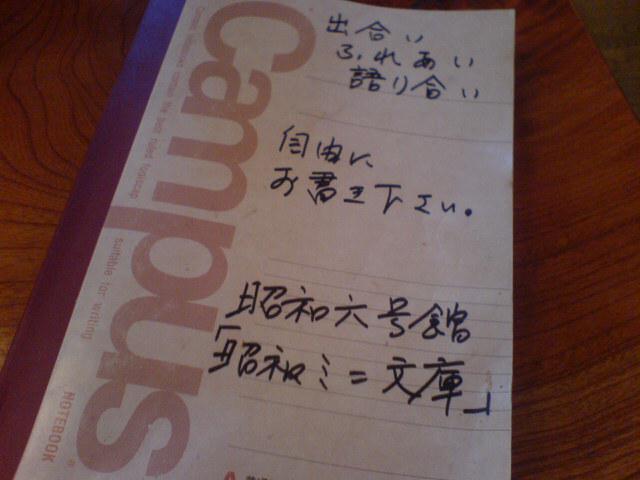 出合い
ふれあい
語り合い
自由に、
お書き下さい。
昭和六号館
「昭和ミニ文庫」
Campus
Campus notebooks contain the best ruled foolscap
suitable for writing
NOTEBOOK